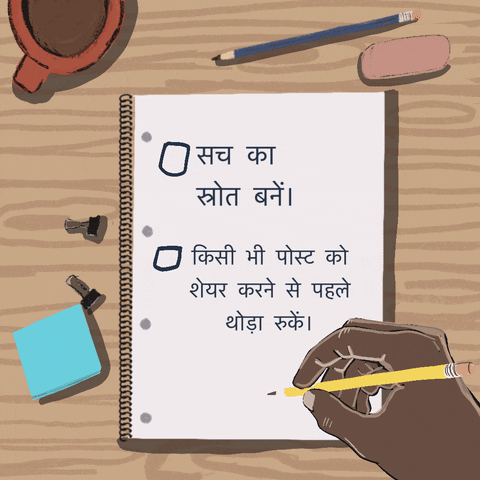 सच का
स्रोत बनें।
किसी भी पोस्ट को
शेयर करने से पहले
थोड़ा रुकें।